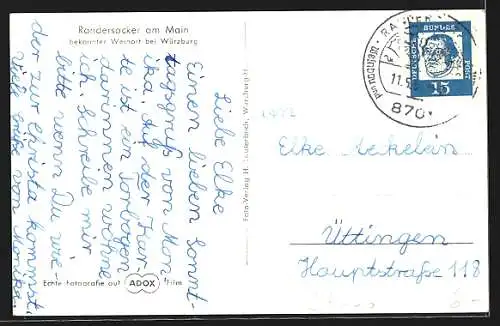 Randersacker am Main
bekannter Weinort bei Würzburg
Liebe Elke
Einen lieben Sonnt-
tagsgruß von Mon-
ika. Auf der Kar-
te ist ein Torbogen
darinnen wohne
ich. Schreibe mir
bitte wenn Du wie-
der zur Christa kommst.
Viele Grüße von Monika.
Echte Fotografie auf ADOX Film
Foto-Verlag H. Lauterbach, Würzburg
DEUTSCHE BUNDES POST
15
8701
Elke
Üttingen
Hauptstraße 118